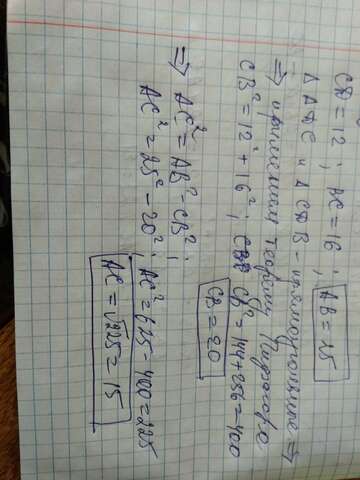 CD = 12 ; AC = 16 ; AB = 25
Δ ADC и Δ CDB - прямоугольные ⇒
⇒ применим теорему Пифагора
CB² = 12² + 16² ; CB² = 144 + 256 = 400
CB = 20
⇒ AC² = AB² - CB² ;
AC² = 25² - 20² ; AC² = 625 - 400 = 225
AC = √225 = 15